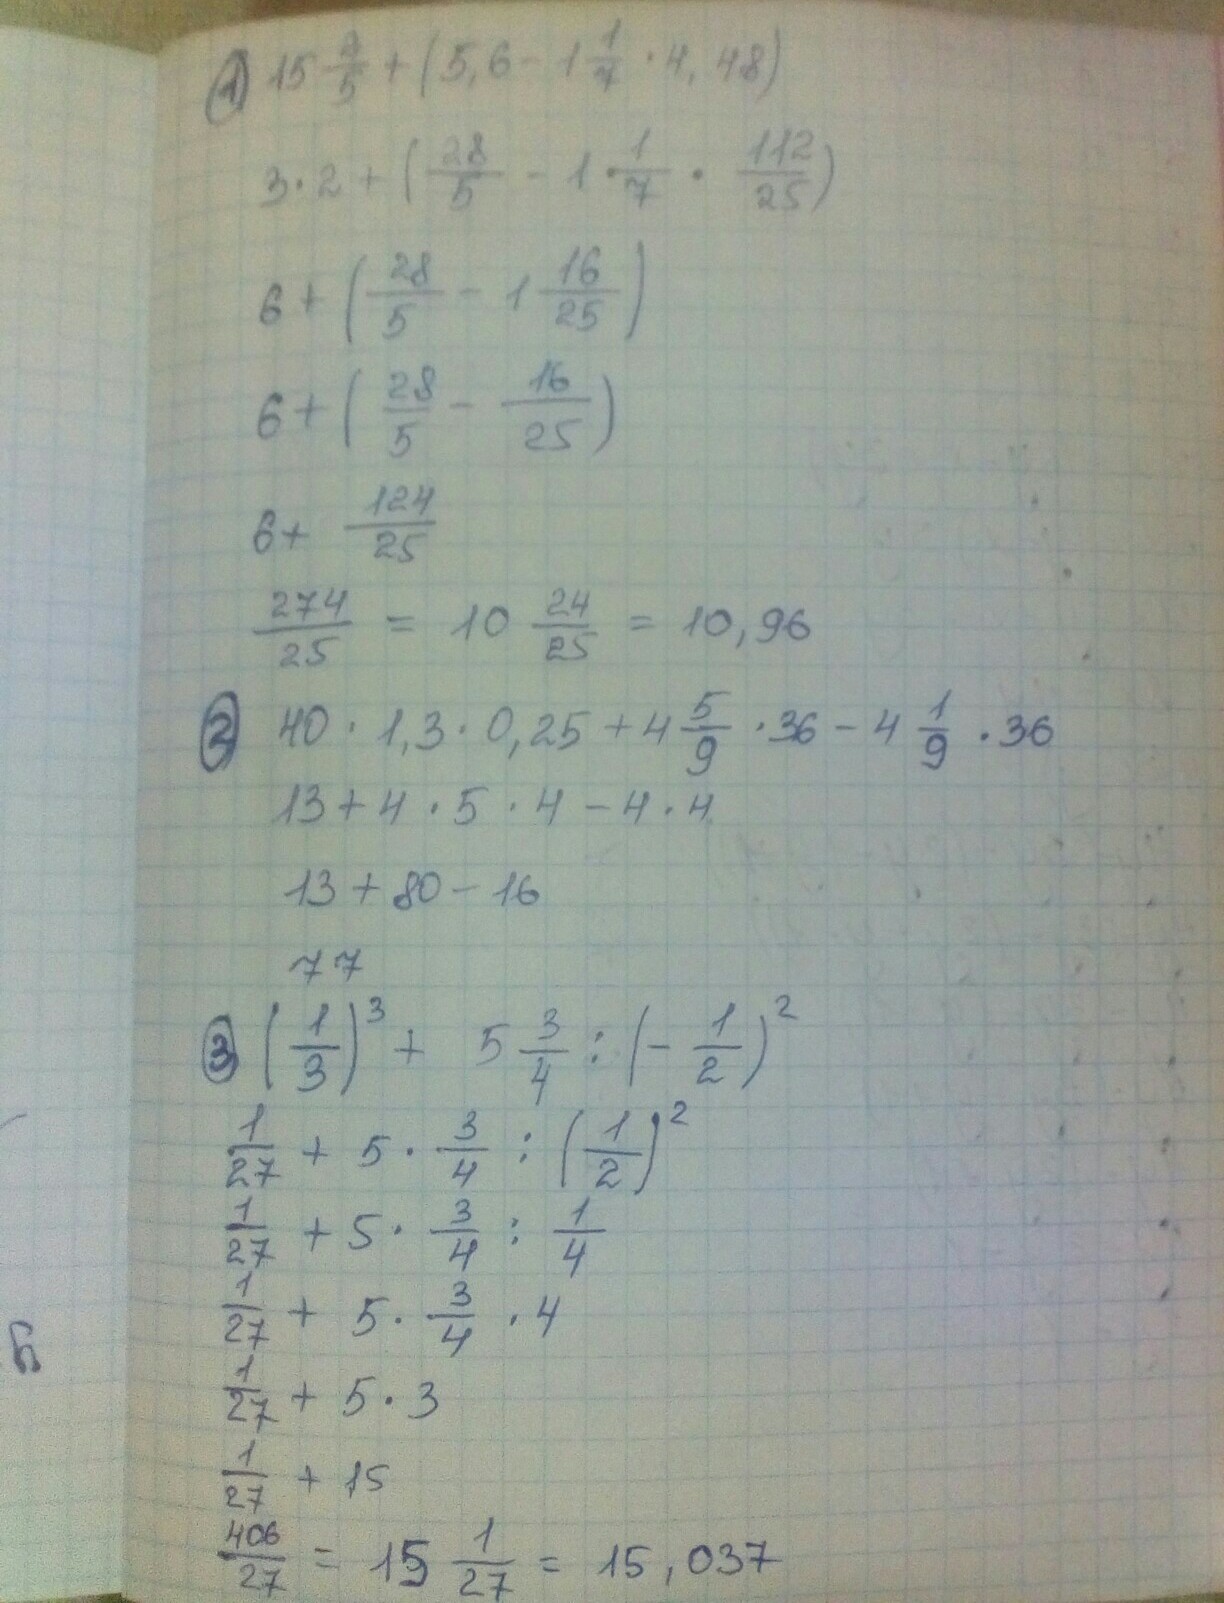 ① 15 2/5 + (5,6 - 1 1/7 · 4,48)
3·2 + (28/5 - 1·1/7 · 112/25)
6 + (28/5 - 1 16/25)
6 + (28/5 - 16/25)
6 + 124/25
274/25 = 10 24/25 = 10,96
② 40 · 1,3 · 0,25 + 4 5/9 · 36 - 4 1/9 · 36
13 + 4 · 5 · 4 - 4 · 4
13 + 80 - 16
77
③ (1/3)³ + 5 3/4 : (- 1/2)²
1/27 + 5 · 3/4 : (1/2)²
1/27 + 5 · 3/4 : 1/4
1/27 + 5 · 3/4 · 4
1/27 + 5 · 3
1/27 + 15
406/27 = 15 1/27 = 15,037